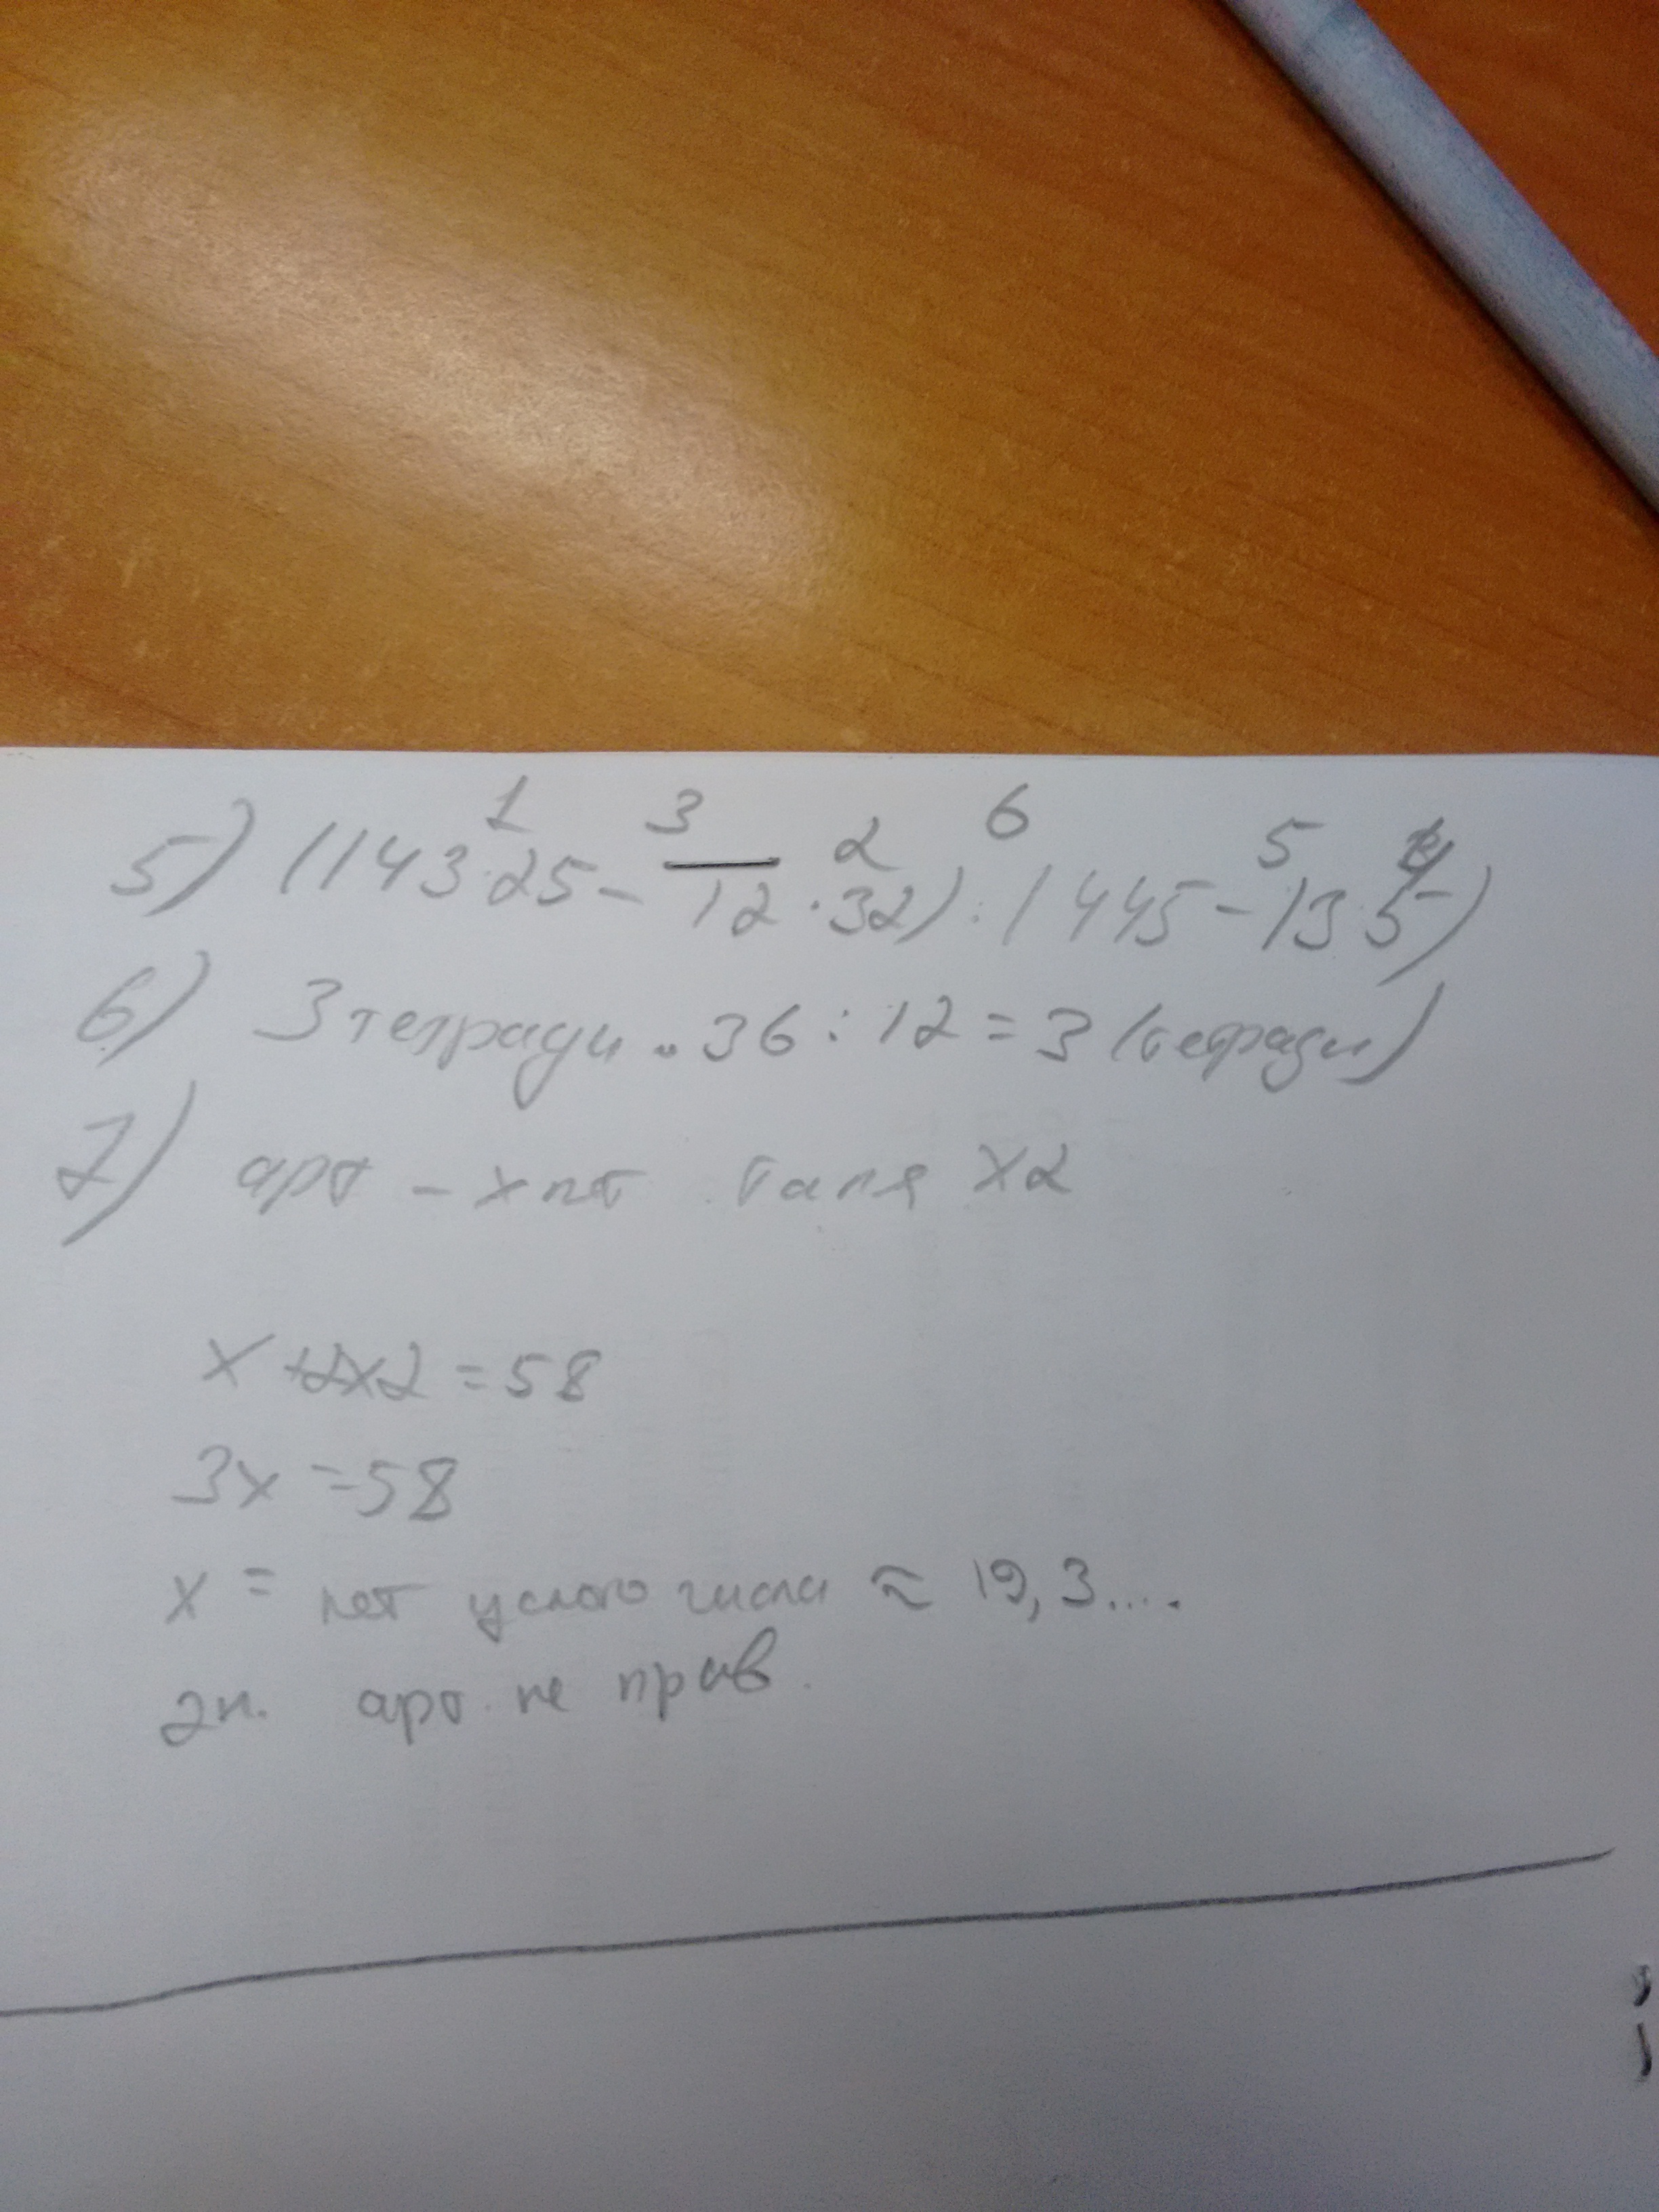 1 3 2 6 5 4
5) (1143·25 - 12·32) : (445 - 13·5)
6) 3 тетради .. 36 : 12 = 3 (тетради)
7) арт - x пт таня x2
x +2x2 = 58
3x = 58
x = нет целого числа ≈ 19,3....
зн. арт. не прав.